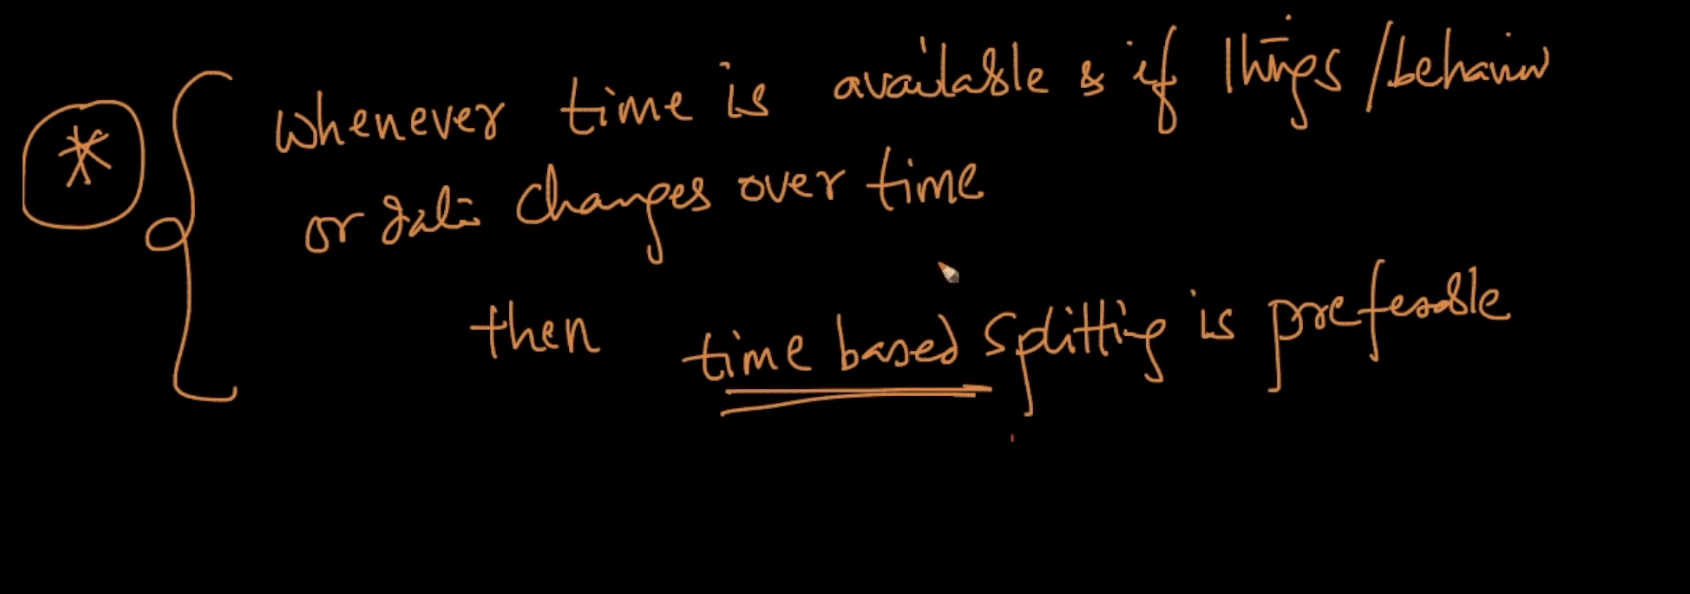 * Whenever time is available & if things/behavior
or data changes over time
then time based splitting is preferable